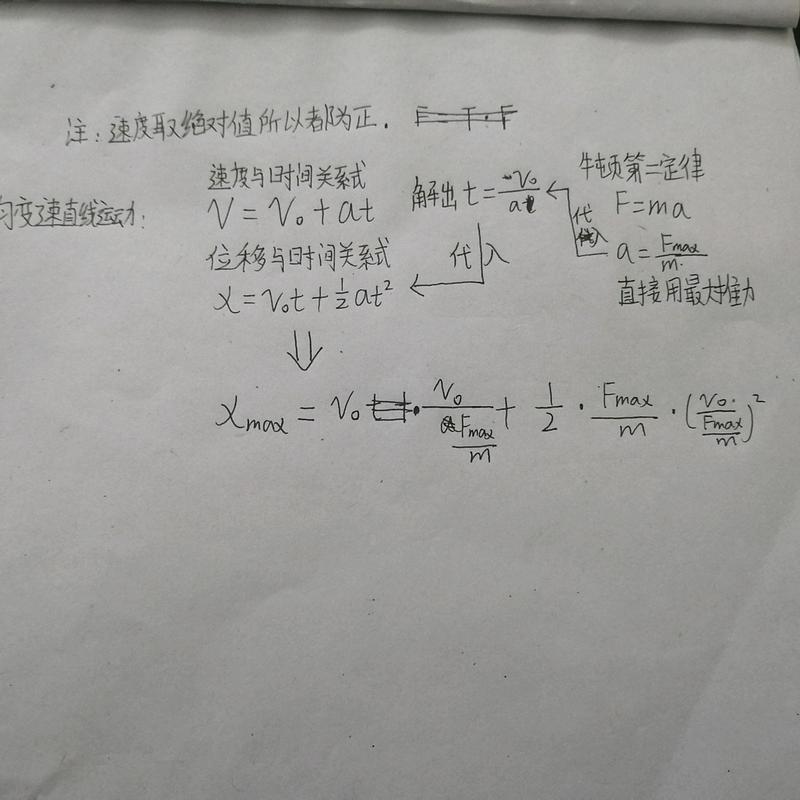 注：速度取绝对值所以者都为正.
匀变速直线运动:
速度与时间关系式
V = V₀ + at
位移与时间关系式
x = v₀t + ½at²
解出 t = -v₀/a
代入
牛顿第二定律
F = ma
a = Fmax/m
直接用最大推力
代入
⇓
xmax = v₀ · v₀/(Fmax/m) + 1/2 · Fmax/m · (v₀/(Fmax/m))²